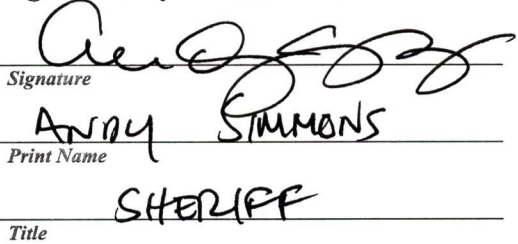 Signature
ANDY SIMMONS
Print Name
SHERIFF
Title